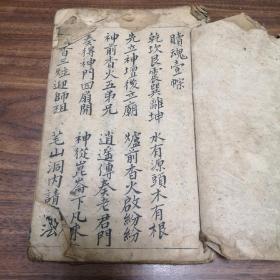 魂壹
乾坎艮震巽離坤 水有源頭木有根
先立神壇後立廟 爐前香火啟紛紛
神前香火五弟兄 逍遙傳奏老君門
奏得神門四扇開 神從崑崙下凡來
百三 迎師祖 茅山洞內請法